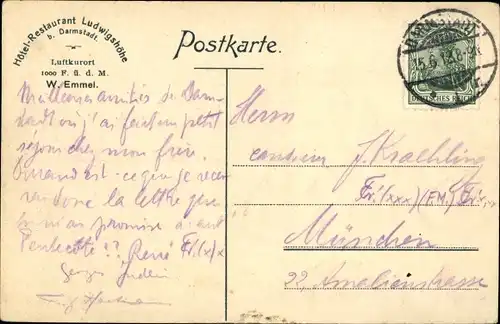 Hôtel-Restaurant Ludwigshöhe
b. Darmstadt.
Luftkurort
1000 F. ü. d. M.
W. Emmel.
Postkarte.
DARMSTADT
DEUTSCHES REICH
Meilleures amitiés de Darm-
stadt où j'ai fait un petit
séjour chez mon frère.
Quand est-ce que je recev
rai donc la lettre que
tu m'as promise
René
Georges
Herrn
J. Kraehling
München
22, Amalienstrasse